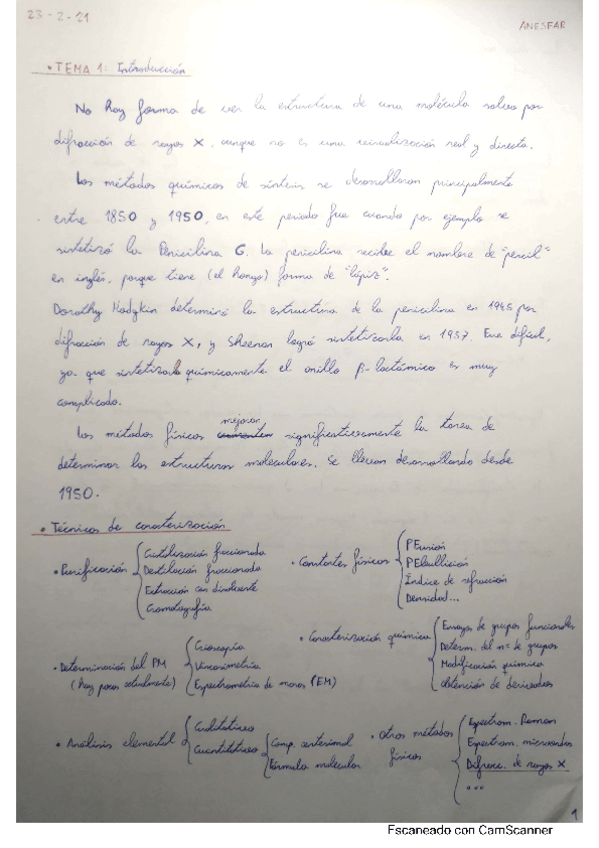 23-2-21
ANESFAR
• TEMA 1: Introducción
No hay forma de ver la estructura de una molécula salvo por
difracción de rayos X, aunque no es una visualización real y directa.
Los métodos químicos de síntesis se desarrollaron principalmente
entre 1850 y 1950, en este periodo fue cuando por ejemplo se
sintetizó la Penicilina G. La penicilina recibe el nombre de "pencil"
en inglés, porque tiene (el hongo) forma de "lápiz".
Dorothy Hodgkin determinó la estructura de la penicilina en 1945 por
difracción de rayos X, y Sheehan logró sintetizarla en 1957. Era difícil,
ya que sintetizar químicamente el anillo β-lactámico es muy
complicado.
Los métodos físicos mejoran significativamente la tarea de
determinar las estructuras moleculares. Se llevan desarrollando desde
1950.
• Técnicas de caracterización
• Purificación
Cristalización fraccionada
Destilación fraccionada
Extracción con disolvente
Cromatografía
• Constantes físicas
PFusión
PEbullición
Índice de refracción
Densidad...
• Determinación del PM
(hay pocas actualmente)
Crioscopia
Viscosimetría
Espectrometría de masas (EM)
• Caracterización química
Ensayos de grupos funcionales
Determ. del nº de grupos
Modificación química
Obtención de derivados
• Análisis elemental
Cualitativo
Cuantitativo
Comp. centesimal
Fórmula molecular
• Otros métodos
físicos
Espectrom. Raman
Espectrom. microondas
Difracc. de rayos X
...
1
Escaneado con CamScanner